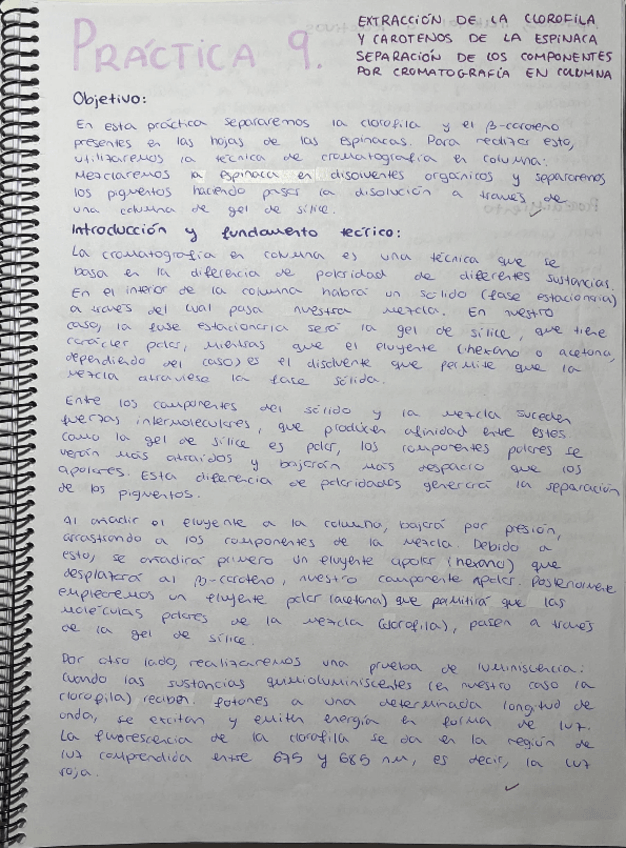 PRÁCTICA 9.
EXTRACCIÓN DE LA CLOROFILA
Y CAROTENOS DE LA ESPINACA
SEPARACIÓN DE LOS COMPONENTES
POR CROMATOGRAFÍA EN COLUMNA
Objetivo:
En esta práctica separaremos la clorofila y el β-caroteno
presentes en las hojas de las espinacas. Para realizar esto,
utilizaremos la técnica de cromatografía en columna:
Mezclaremos la espinaca en disolventes orgánicos y separaremos
los pigmentos haciendo pasar la disolución a través de
una columna de gel de sílice.
Introducción y fundamento teórico:
La cromatografía en columna es una técnica que se
basa en la diferencia de polaridad de diferentes sustancias.
En el interior de la columna habrá un sólido (fase estacionaria)
a través del cual pasa nuestra mezcla. En nuestro
caso, la fase estacionaria será la gel de sílice, que tiene
carácter polar, mientras que el eluyente (hexano o acetona,
dependiendo del caso) es el disolvente que permite que la
mezcla atraviese la fase sólida.
Entre los componentes del sólido y la mezcla suceden
fuerzas intermoleculares, que producen afinidad entre estos.
Como la gel de sílice es polar, los componentes polares se
verán más atraídos y bajarán más despacio que los
apolares. Esta diferencia de polaridades generará la separación
de los pigmentos.
Al añadir el eluyente a la columna, bajará por presión,
arrastrando a los componentes de la mezcla. Debido a
esto, se añadirá primero un eluyente apolar (hexano) que
desplazará al β-caroteno, nuestro componente apolar. Posteriormente
emplearemos un eluyente polar (acetona) que permitirá que las
moléculas polares de la mezcla (clorofila), pasen a través
de la gel de sílice.
Por otro lado, realizaremos una prueba de luminiscencia:
Cuando las sustancias quimioluminiscentes (en nuestro caso la
clorofila) reciben fotones a una determinada longitud de
onda, se excitan y emiten energía en forma de luz.
La fluorescencia de la clorofila se da en la región de
luz comprendida entre 675 y 685 nm, es decir, la luz
roja.